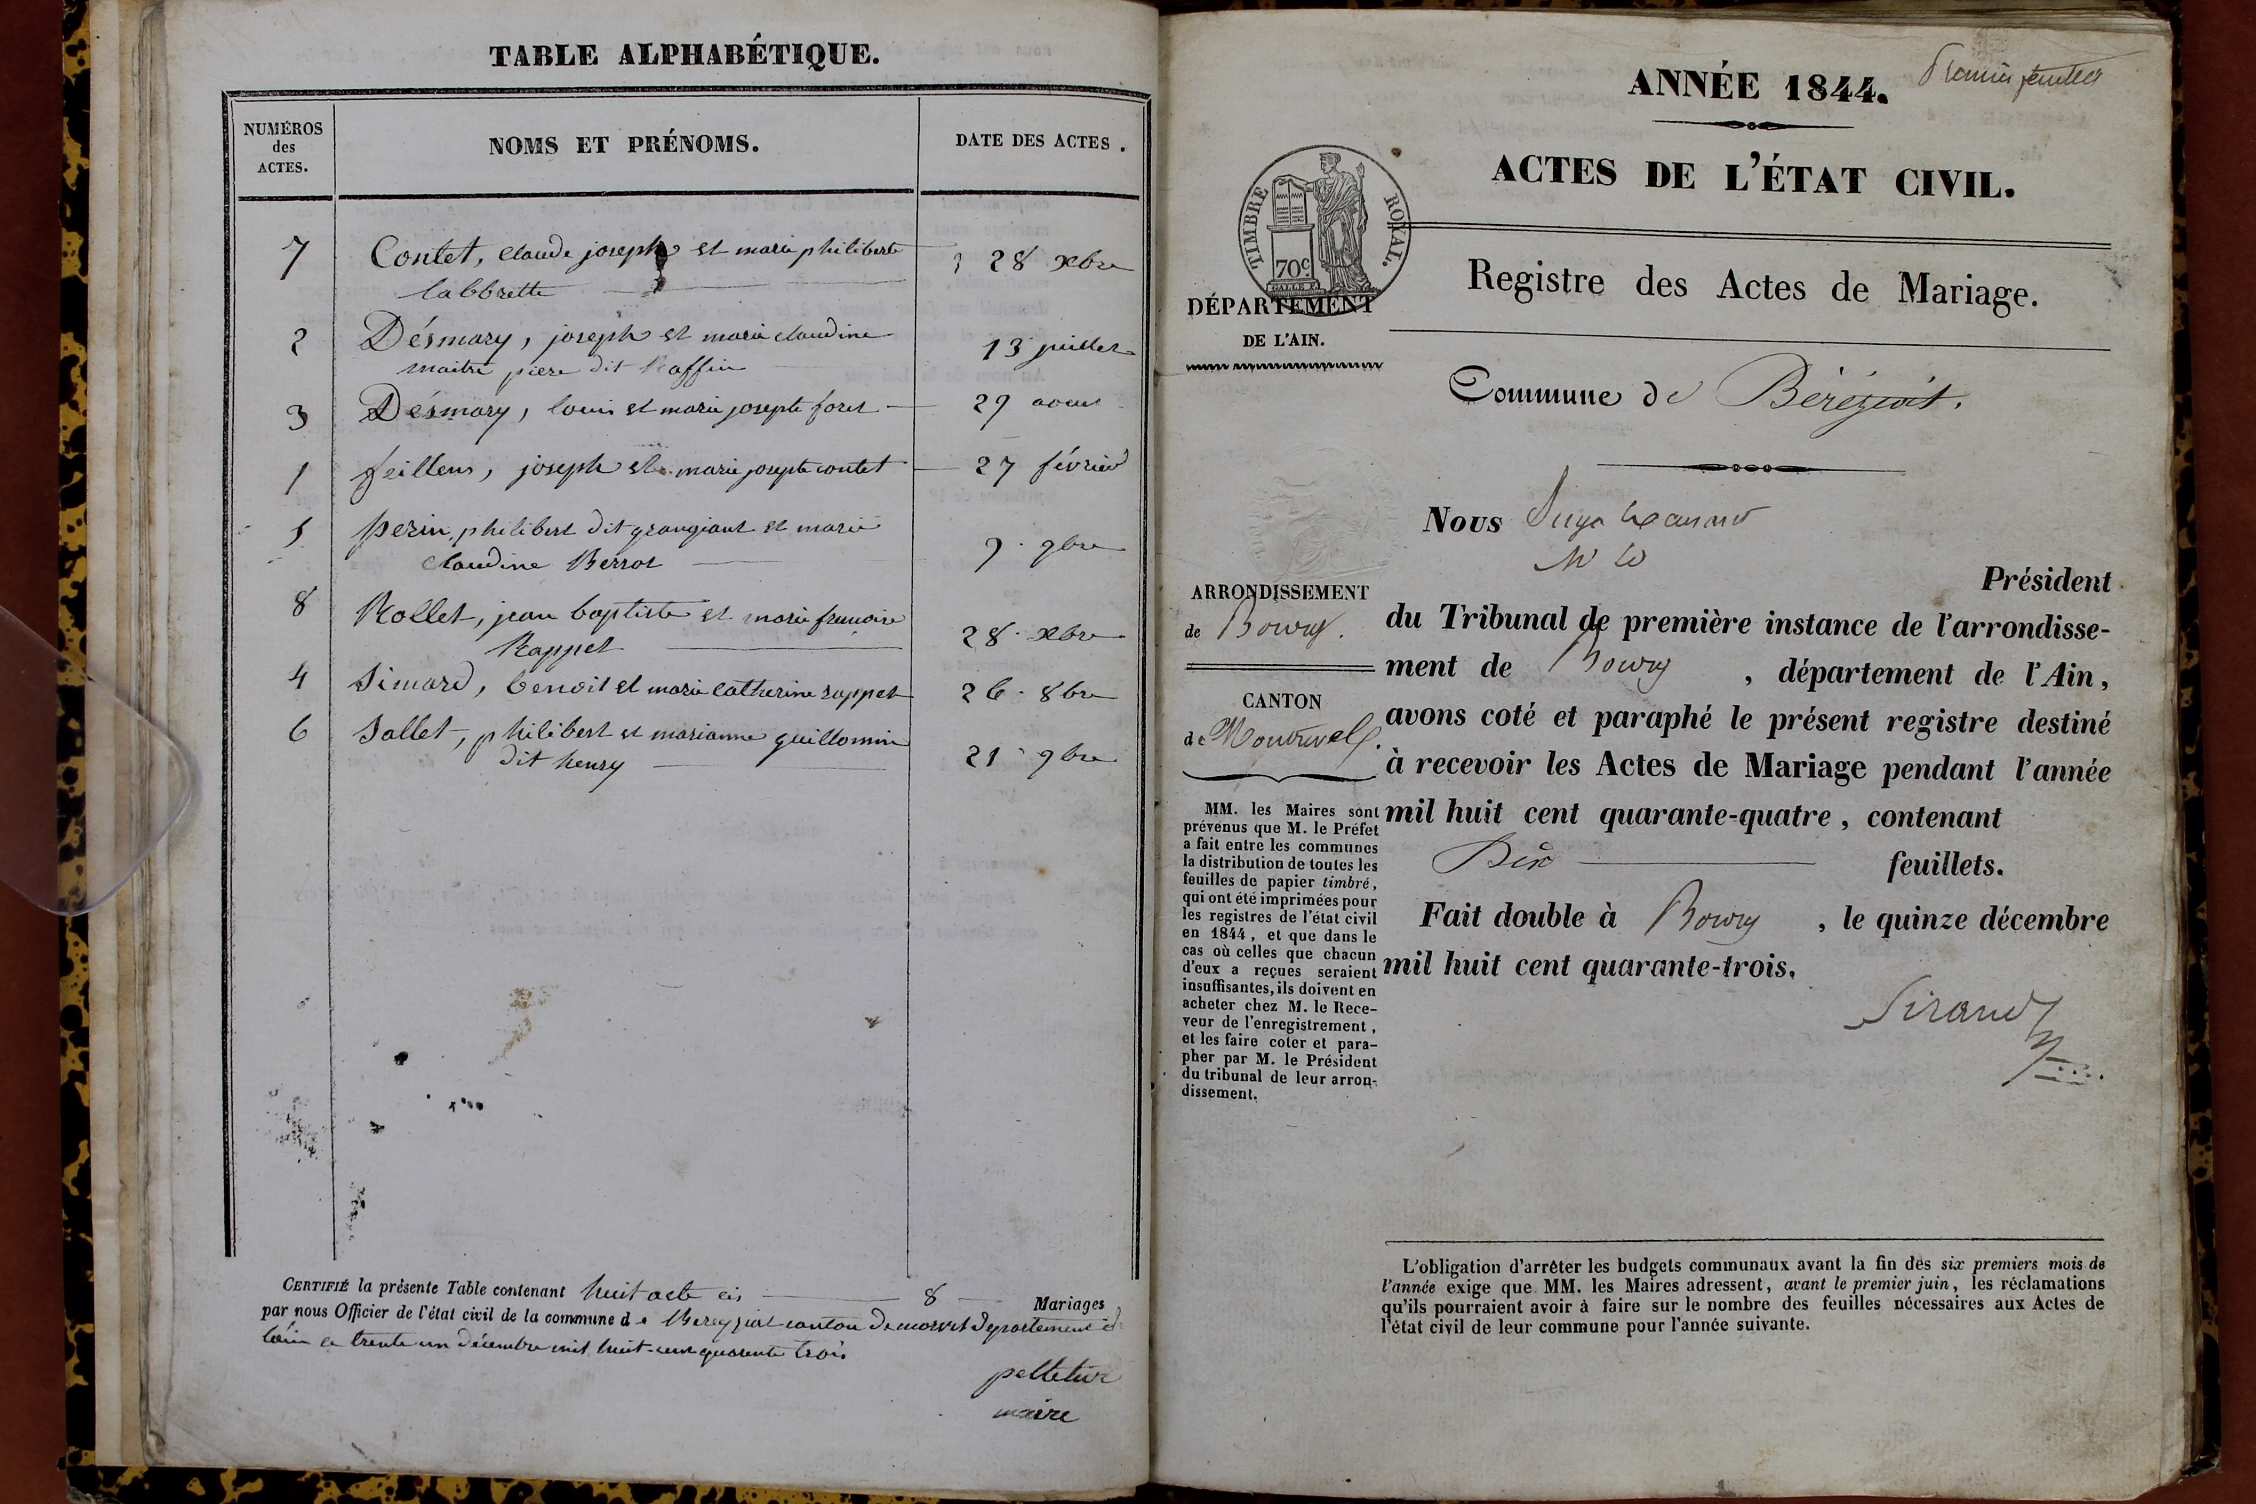 TABLE ALPHABÉTIQUE.
NUMÉROS
des
ACTES.
NOMS ET PRÉNOMS.
DATE DES ACTES.
7 Contet, claude joseph et marie philiberte 28 xbre
labbrette
2 Désmary, joseph et marie claudine 13 juillet
maitre piere dit Raffin
3 Désmary, louis et marie josepte foret 29 aout
1 feillens, joseph et marie josepte contet 27 février
5 perin, philibert dit grangiant et marie
claudine Berrot 9 9bre
8 Rollet, jean baptiste et marie francoise
Rappet 28 xbre
4 Simard, benoit et marie catherine rappet 26 8bre
6 Sallet, philibert et marianne guillomin
dit henry 21 9bre
CERTIFIÉ la présente Table contenant huit acte ci 8 Mariages
par nous Officier de l'état civil de la commune de Bereyziat canton de Département de
lain le trente un décembre mil huit cent quarente trois
pelletier
maire
premier feuillet
ANNÉE 1844.
ACTES DE L'ÉTAT CIVIL.
TIMBRE ROYAL.
70c
DÉPARTEMENT
DE L'AIN.
Registre des Actes de Mariage.
Commune de Béréziat.
Nous
Président
ARRONDISSEMENT
de Bourg.
CANTON
de Montrevel.
MM. les Maires sont
prévenus que M. le Préfet
a fait entre les communes
la distribution de toutes les
feuilles de papier timbré,
qui ont été imprimées pour
les registres de l'état civil
en 1844, et que dans le
cas où celles que chacun
d'eux a reçues seraient
insuffisantes, ils doivent en
acheter chez M. le Rece-
veur de l'enregistrement,
et les faire coter et para-
pher par M. le Président
du tribunal de leur arron-
dissement.
du Tribunal de première instance de l'arrondisse-
ment de Bourg, département de l'Ain,
avons coté et paraphé le présent registre destiné
à recevoir les Actes de Mariage pendant l'année
mil huit cent quarante-quatre, contenant
Dix feuillets.
Fait double à Bourg, le quinze décembre
mil huit cent quarante-trois.
Sirand
L'obligation d'arrêter les budgets communaux avant la fin des six premiers mois de
l'année exige que MM. les Maires adressent, avant le premier juin, les réclamations
qu'ils pourraient avoir à faire sur le nombre des feuilles nécessaires aux Actes de
l'état civil de leur commune pour l'année suivante.